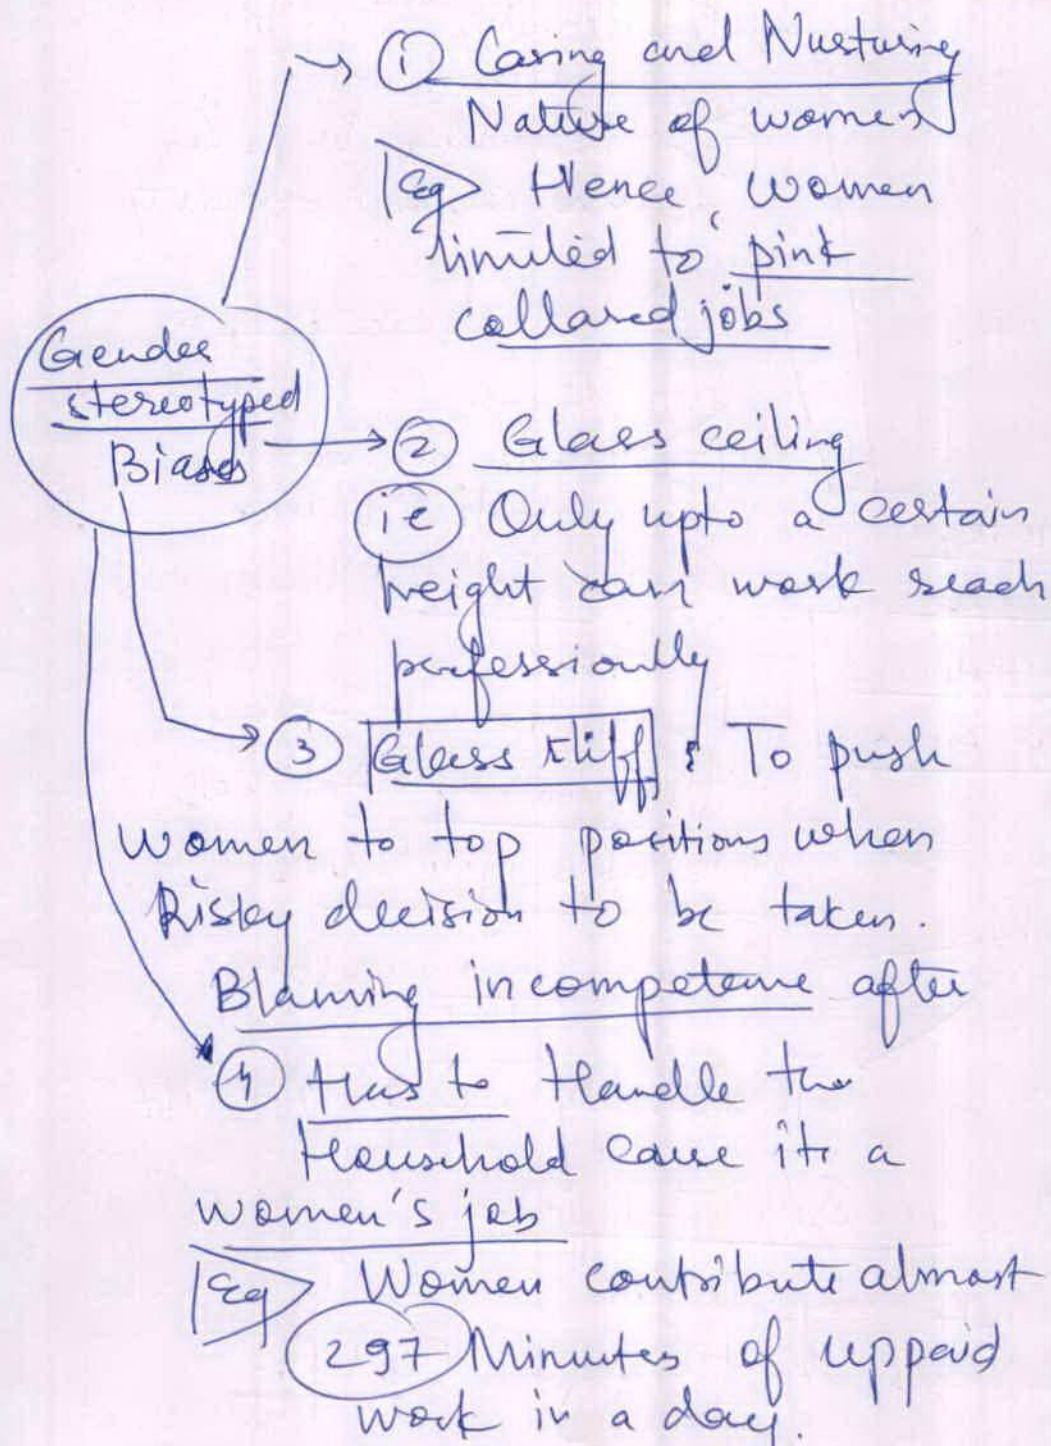 ① Caring and Nurturing
Nature of women
Eg Hence, women
limited to pink
collared jobs
Gender
stereotyped
Biases
② Glass ceiling
ie Only upto a certain
height can work reach
perfessionally
③ Glass Cliff : To push
women to top positions when
Risky decision to be taken.
Blaming incompetence after
④ Has to Handle the
Household cause its a
women's job
Eg Women contribute almost
297 Minutes of uppaid
work in a day.